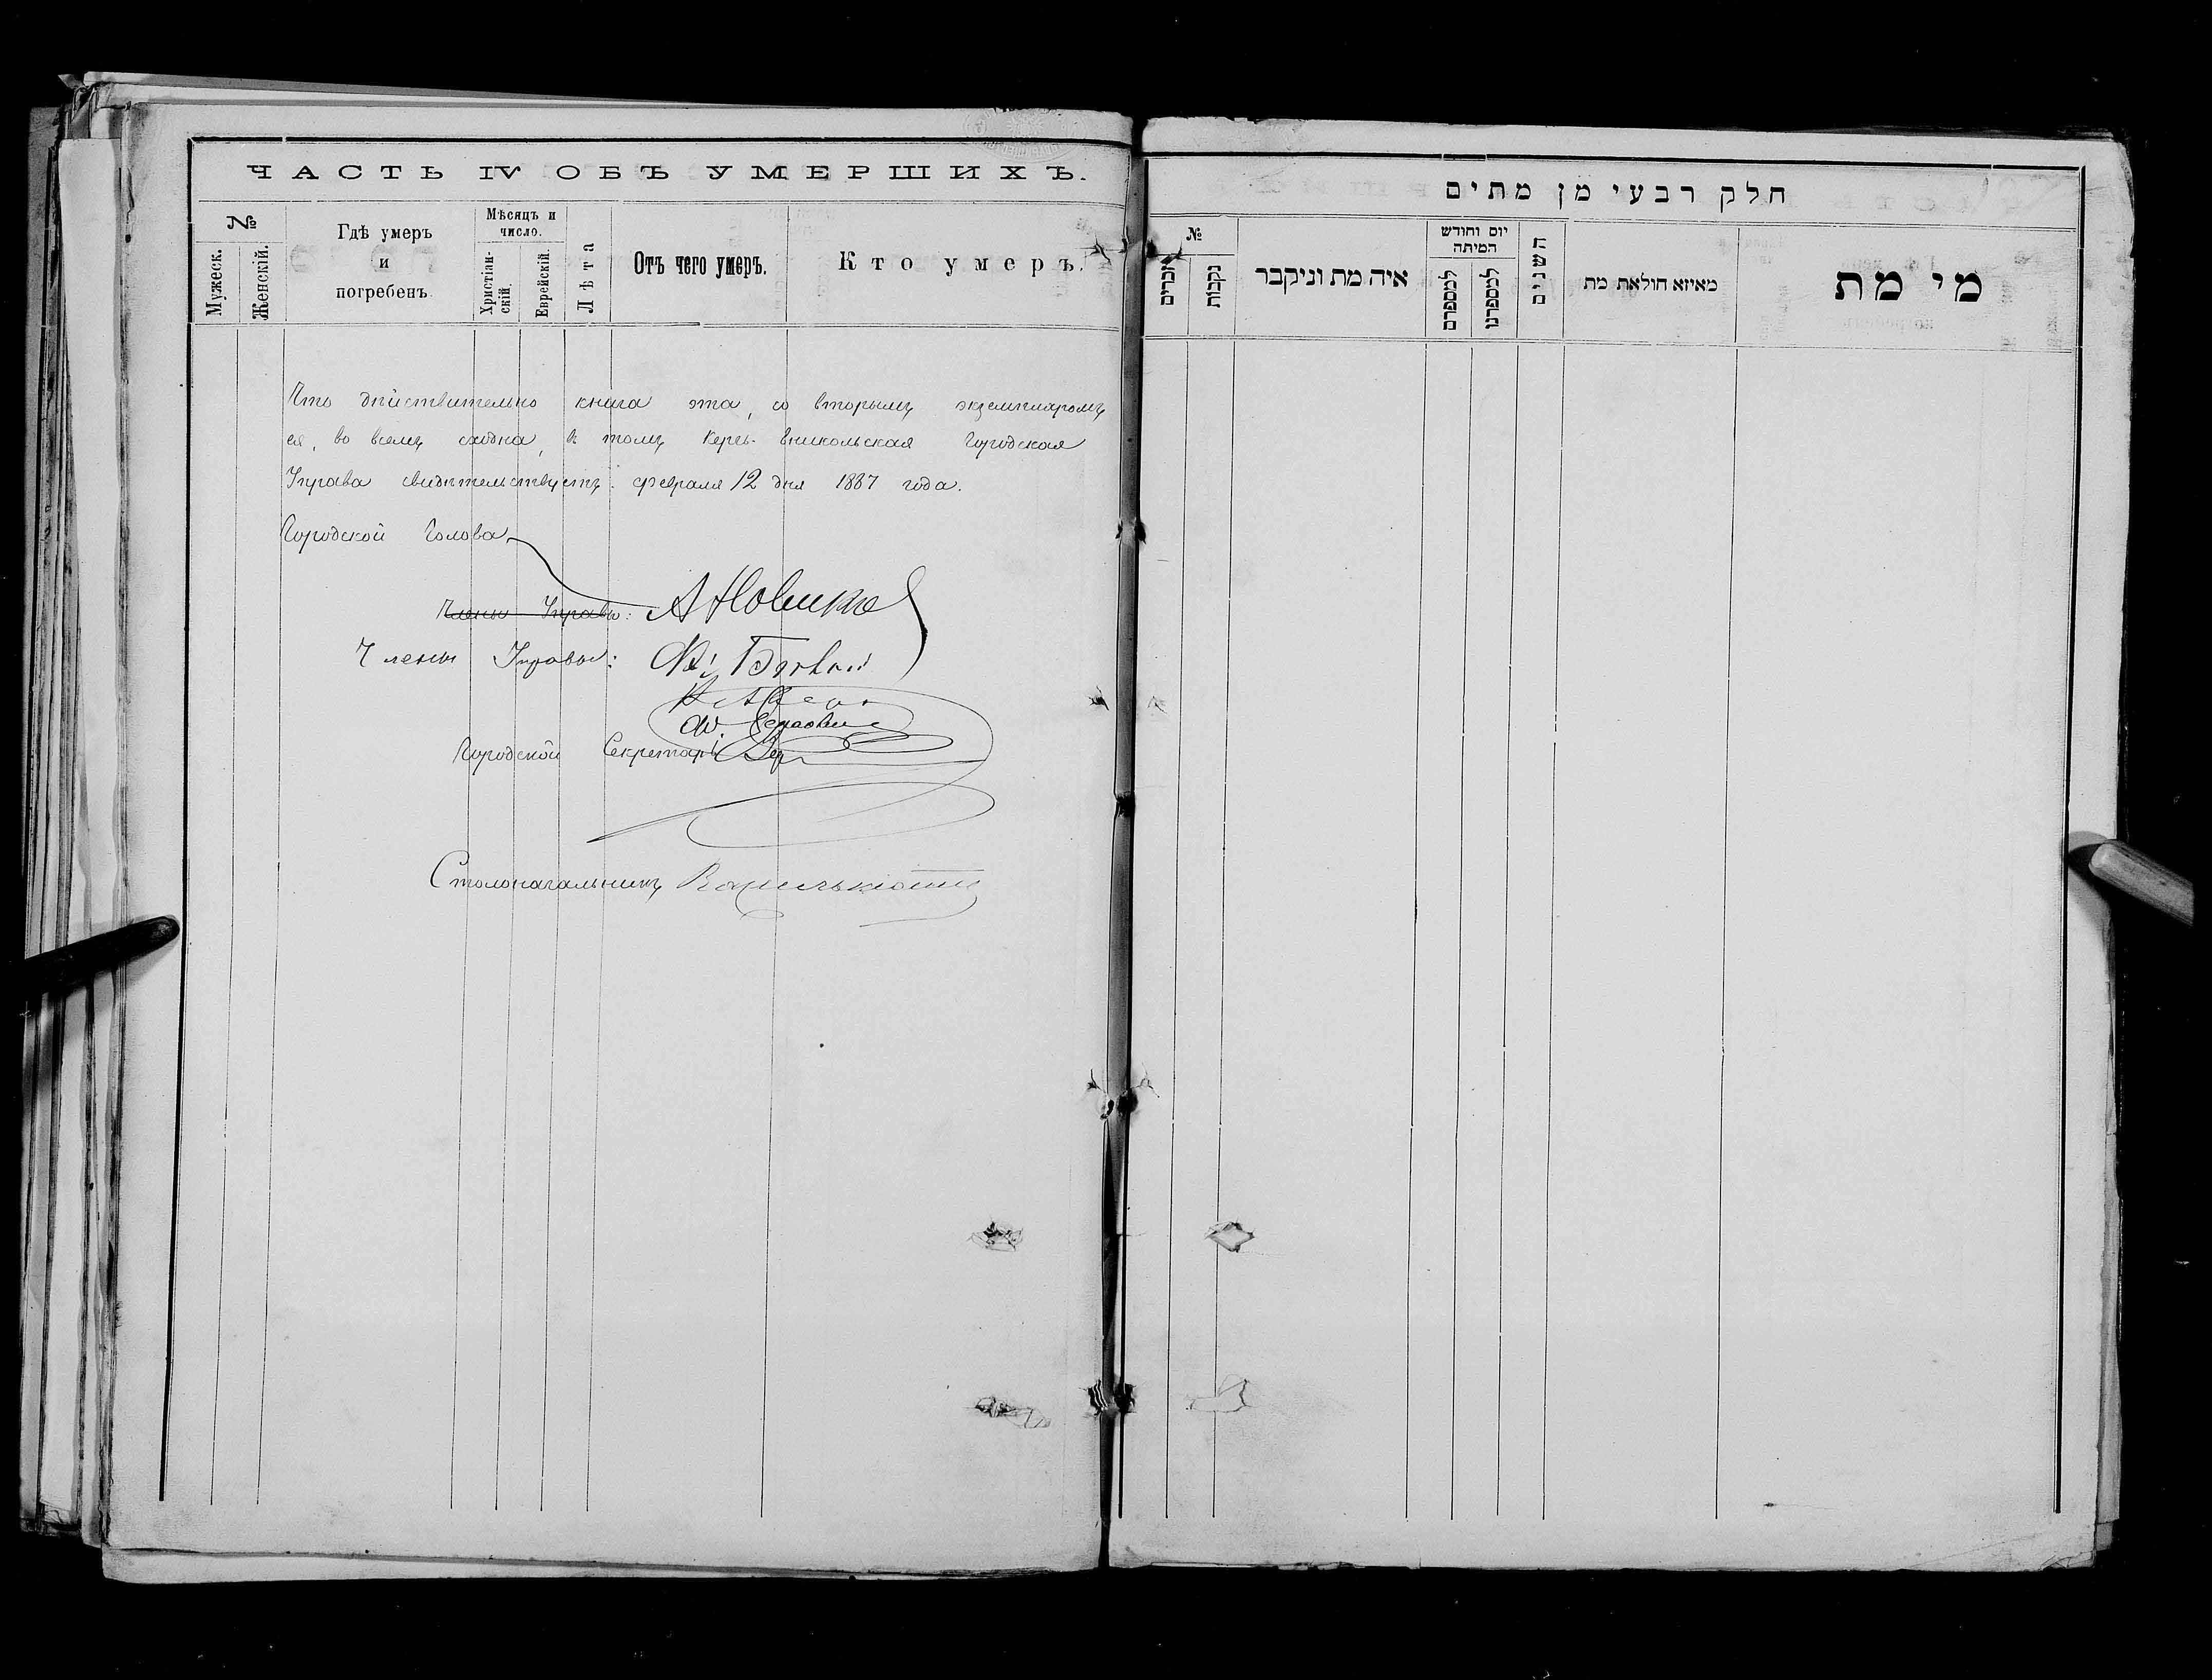 ЧАСТЬ IV ОБЪ УМЕРШИХЪ.
№
Мужеск.
Женскій.
Гдѣ умеръ
и
погребенъ
Мѣсяцъ и
число.
Христіан-
скій.
Еврейскій.
Лѣта
Отъ чего умеръ.
Кто умеръ.
Что дѣйствительно книга эта, со вторымъ экземпляромъ
ея, во всемъ сходна, въ томъ Керчь-Еникольская Городская
Управа свидѣтельствуетъ: февраля 12 дня 1887 года.
Городской Голова
Члены Управы:
А Новиков
Члены Управы:
Городской Секретарь
Столоначальникъ
חלק רבעי מן מתים
№
זכרים
נקבות
איה מת וניקבר
יום וחודש
המיתה
למספרם
למספרנו
השנים
מאיזא חולאת מת
מי מת